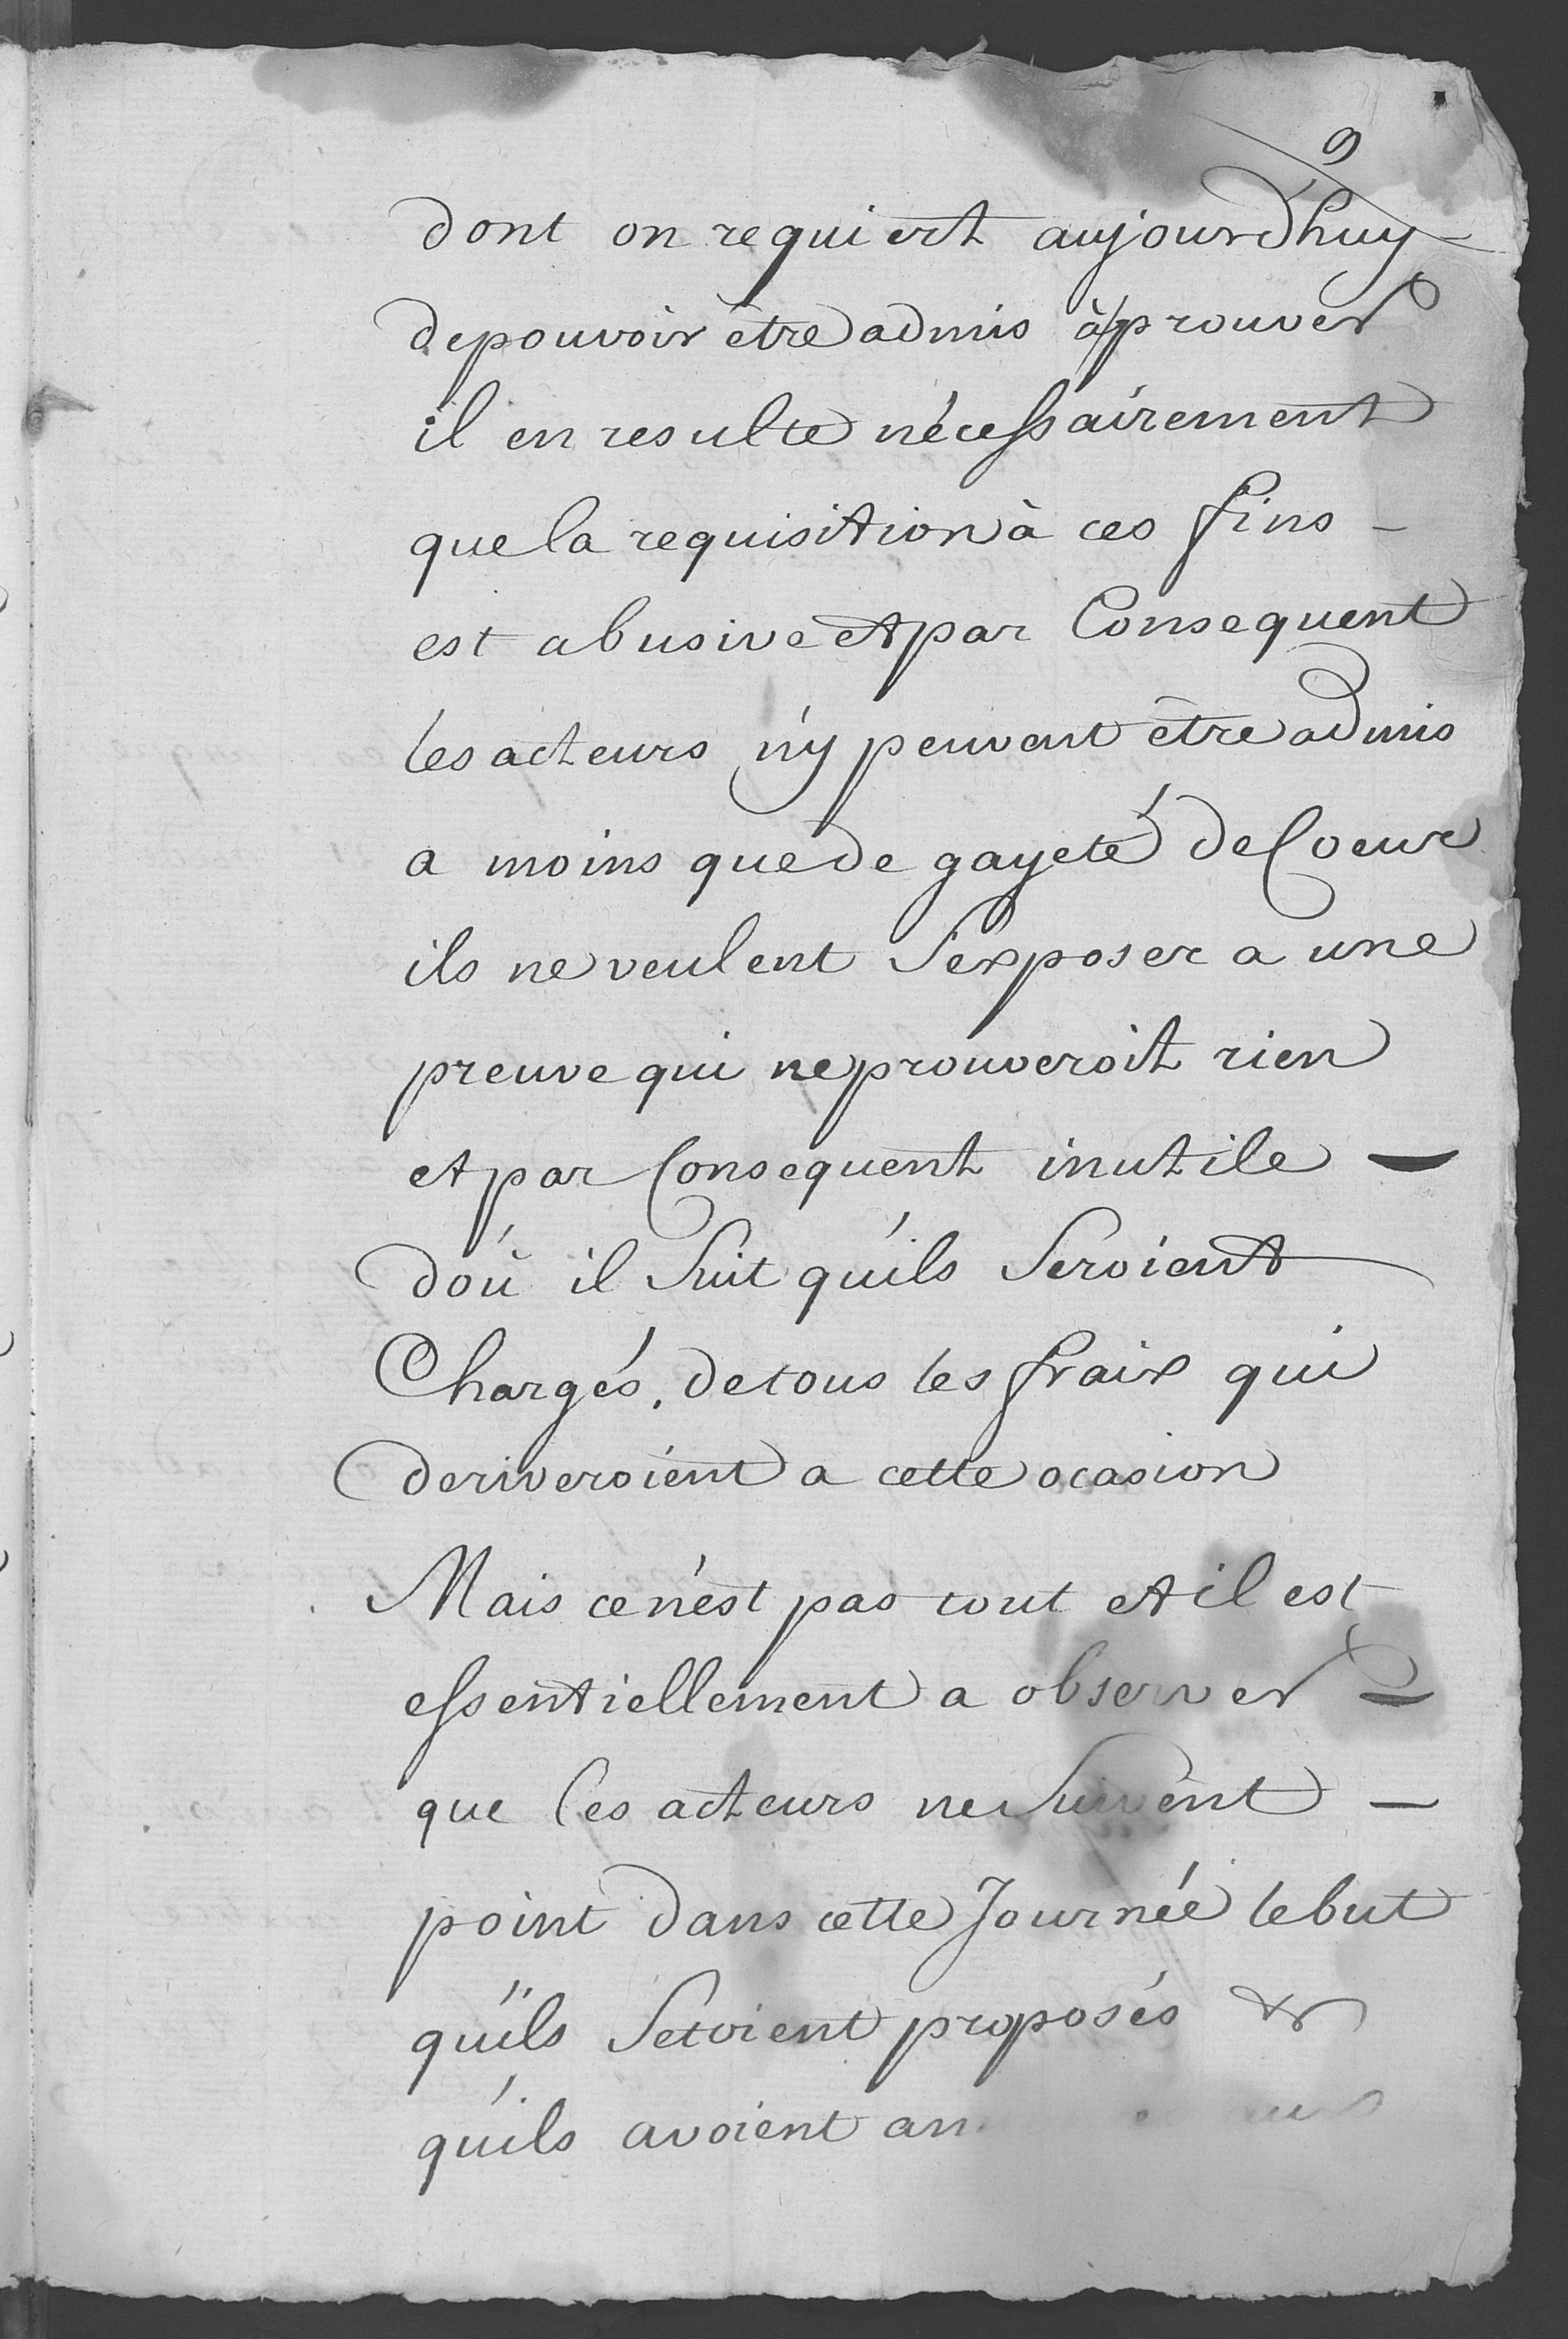 9
dont on requiert aujourd'huy
de pouvoir être admis à prouver
il en resulte nécessairement
que la requisition à ces fins -
est abusive et par Consequent
les acteurs n'y peuvent être admis
a moins que de gayeté de Coeur
ils ne veulent s'exposer a une
preuve qui ne prouveroit rien
et par Consequent inutile -
d'ou il suit qu'ils seroient
Chargés, de tous les fraix qui
deriveroient a cette ocasion
Mais ce n'est pas tout et il est
essentiellement a observer -
que les acteurs ne suivent -
point dans cette Journée le but
qu'ils s'etoient proposés &
qu'ils avoient